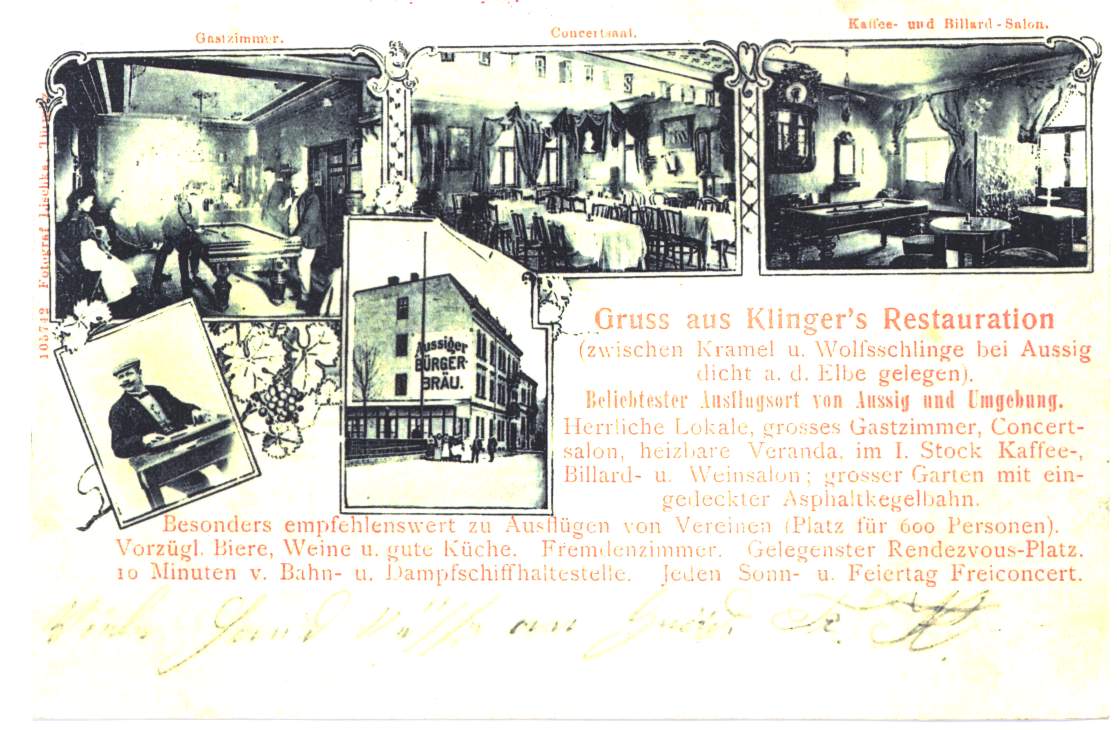 Gastzimmer.
Concertsaal.
Kaffee- und Billard-Salon.
105742 Fotograf Lischka,
Aussiger
BÜRGER-
BRÄU.
Gruss aus Klinger's Restauration
(zwischen Kramel u. Wolfsschlinge bei Aussig
dicht a. d. Elbe gelegen).
Beliebtester Ausflugsort von Aussig und Umgebung.
Herrliche Lokale, grosses Gastzimmer, Concert-
salon, heizbare Veranda, im I. Stock Kaffee-,
Billard- u. Weinsalon; grosser Garten mit ein-
gedeckter Asphaltkegelbahn.
Besonders empfehlenswert zu Ausflügen von Vereinen (Platz für 600 Personen).
Vorzügl. Biere, Weine u. gute Küche. Fremdenzimmer. Gelegenster Rendezvous-Platz.
10 Minuten v. Bahn- u. Dampfschiffhaltestelle. Jeden Sonn- u. Feiertag Freiconcert.